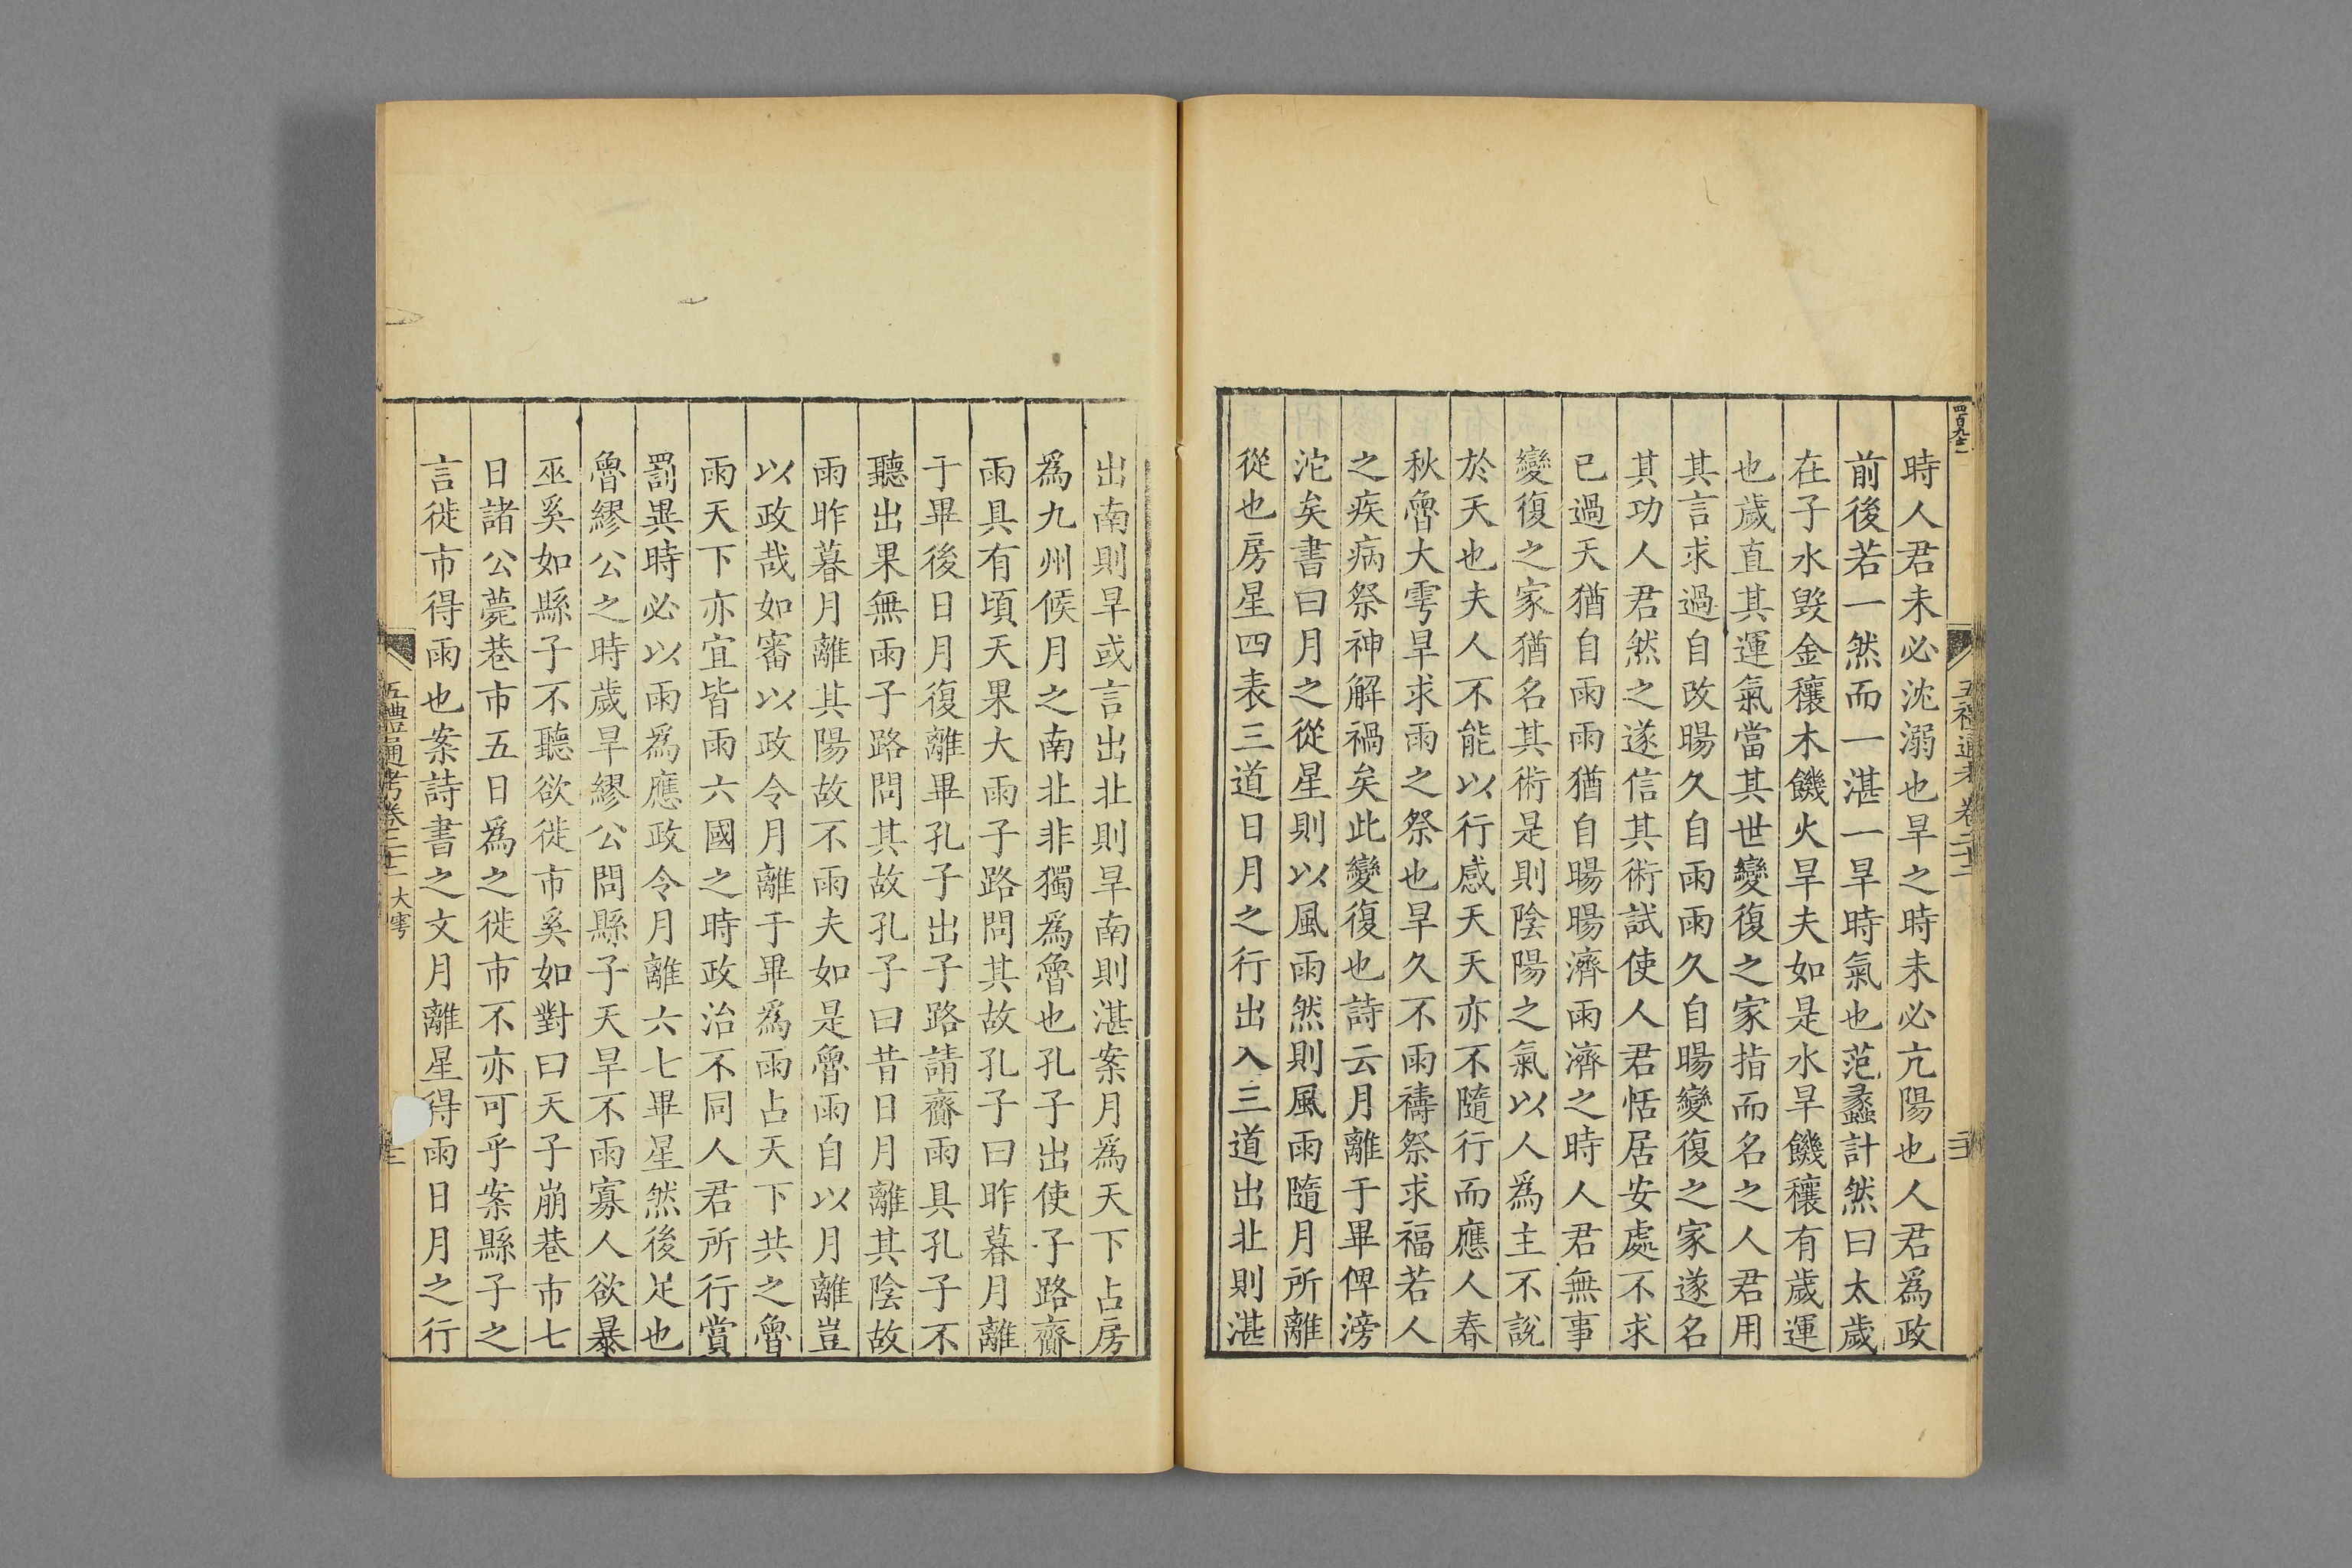 時人君未必沈溺也旱之時未必亢陽也人君爲政
前後若一然而一湛一旱時氣也范蠡計然曰太歲
在子水毀金穰木饑火旱夫如是水旱饑穰有歲運
也歲直其運氣當其世變復之家指而名之人君用
其言求過自改暘久自雨雨久自暘變復之家遂名
其功人君然之遂信其術試使人君恬居安處不求
已過天猶自雨雨猶自暘暘濟雨濟之時人君無事
變復之家猶名其術是則陰陽之氣以人爲主不說
於天也夫人不能以行感天天亦不隨行而應人春
秋魯大雩旱求雨之祭也旱久不雨禱祭求福若人
之疾病祭神解禍矣此變復也詩云月離于畢俾滂
沱矣書曰月之從星則以風雨然則風雨隨月所離
從也房星四表三道日月之行出入三道出北則湛
出南則旱或言出北則旱南則湛案月爲天下占房
爲九州候月之南北非獨爲魯也孔子出使子路齎
雨具有頃天果大雨子路問其故孔子曰昨暮月離
于畢後日月復離畢孔子出子路請齎雨具孔子不
聽出果無雨子路問其故孔子曰昔日月離其陰故
雨昨暮月離其陽故不雨夫如是魯雨自以月離豈
以政哉如審以政令月離于畢爲雨占天下共之魯
雨天下亦宜皆雨六國之時政治不同人君所行賞
罰異時必以雨爲應政令月離六七畢星然後足也
魯繆公之時歲旱繆公問縣子天旱不雨寡人欲暴
巫奚如縣子不聽欲徙市奚如對曰天子崩巷市七
日諸公薨巷市五日爲之徙市不亦可乎案縣子之
言徙市得雨也案詩書之文月離星得雨日月之行
五禮通考卷二十二 大雩